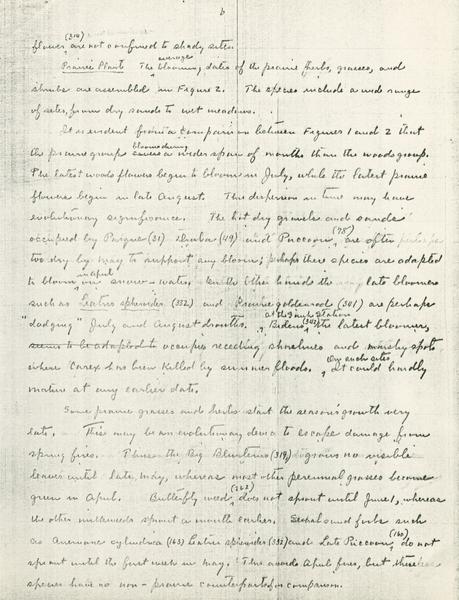 6
flower (314) are not confined to shady sites.
Prairie Plants The average blooming dates of the prairie herbs, grasses, and
shrubs are assembled in Figure 2. The species include a wide range
of sites, from dry sands to wet meadows.
It is evident from a comparison between Figures 1 and 2 that
the prairie group blooms during a wider span of months than the woods group.
The latest woods flowers begin to bloom in July, while the latest prairie
flowers begin in late August. The dispersion in time may have
evolutionary significance. The hot dry gravels and sands
occupied by Pasque (31) (49) and Puccoon (78), are often perhaps
too dry by May to support any bloom; perhaps these species are adapted
to bloom in April on snow-water. On the other hand the late bloomers
such as Liatris (332) and Prairie goldenrod (301) are perhaps
"dodging" July and August drouths. Bidens the latest bloomer, at the Shack Station
seems to be adapted to occupies receding shorelines and marshy spots
where Carex has been killed by summer floods. On such sites, It could hardly
mature at any earlier date.
Some prairie grasses and herbs start the season's growth very
late. This may be an evolutionary device to escape damage from
spring fires. Thus the Big Bluestem (319) grows no visible
leaves until late May, whereas most other perennial grasses become
green in April. Butterfly weed (262) does not sprout until June 1, whereas
the other milkweeds sprout a month earlier. Several sand forbs such
as Anemone cylindrica (163) Liatris (332) and Late Puccoon (160), do not
sprout until the first week in May. This avoids April fires, but these
species have no non-prairie counterparts for comparison.